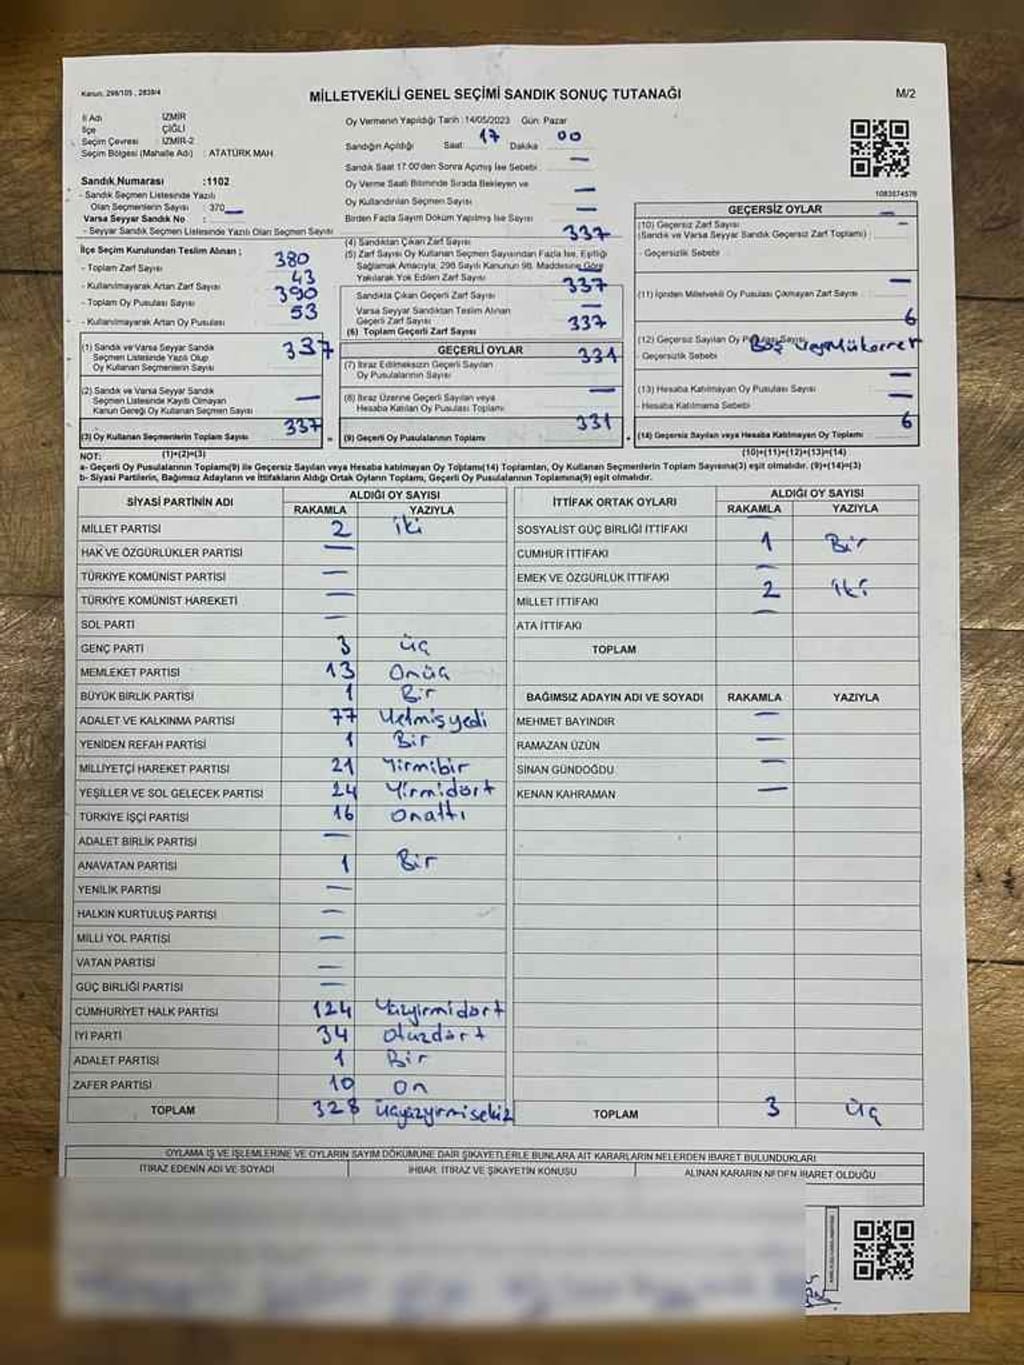 Kanun: 298/105 , 2839/4
MİLLETVEKİLİ GENEL SEÇİMİ SANDIK SONUÇ TUTANAĞI
M/2
İl Adı : İZMİR
İlçe : ÇİĞLİ
Seçim Çevresi : İZMİR-2
Seçim Bölgesi (Mahalle Adı) : ATATÜRK MAH
Sandık Numarası :1102
- Sandık Seçmen Listesinde Yazılı
Olan Seçmenlerin Sayısı : 370 —
Varsa Seyyar Sandık No :
- Seyyar Sandık Seçmen Listesinde Yazılı Olan Seçmen Sayısı :
Oy Vermenin Yapıldığı Tarih : 14/05/2023 Gün: Pazar
Sandığın Açıldığı Saat: 17 Dakika: 00
Sandık Saat 17:00'den Sonra Açılmış İse Sebebi : —
Oy Verme Saati Bitiminde Sırada Bekleyen ve
Oy Kullandırılan Seçmen Sayısı : —
Birden Fazla Sayım Döküm Yapılmış İse Sayısı : —
1083574576
İlçe Seçim Kurulundan Teslim Alınan ;
- Toplam Zarf Sayısı 380
- Kullanılmayarak Artan Zarf Sayısı 43
- Toplam Oy Pusulası Sayısı 390
- Kullanılmayarak Artan Oy Pusulası 53
(1) Sandık ve Varsa Seyyar Sandık
Seçmen Listesinde Yazılı Olup
Oy Kullanan Seçmenlerin Sayısı 337
(2) Sandık ve Varsa Seyyar Sandık
Seçmen Listesinde Kayıtlı Olmayan
Kanun Gereği Oy Kullanan Seçmen Sayısı —
(3) Oy Kullanan Seçmenlerin Toplam Sayısı 337
(1)+(2)=(3)
(4) Sandıktan Çıkan Zarf Sayısı 337
(5) Zarf Sayısı Oy Kullanan Seçmen Sayısından Fazla İse, Eşitliği
Sağlamak Amacıyla, 298 Sayılı Kanunun 98. Maddesine Göre
Yakılarak Yok Edilen Zarf Sayısı —
Sandıkta Çıkan Geçerli Zarf Sayısı 337
Varsa Seyyar Sandıktan Teslim Alınan
Geçerli Zarf Sayısı —
(6) Toplam Geçerli Zarf Sayısı 337
GEÇERLİ OYLAR
(7) İtiraz Edilmeksizin Geçerli Sayılan
Oy Pusulalarının Sayısı 331
(8) İtiraz Üzerine Geçerli Sayılan veya
Hesaba Katılan Oy Pusulası Toplamı —
(9) Geçerli Oy Pusulalarının Toplamı 331
GEÇERSİZ OYLAR
(10) Geçersiz Zarf Sayısı
(Sandık ve Varsa Seyyar Sandık Geçersiz Zarf Toplamı) : —
- Geçersizlik Sebebi
(11) İçinden Milletvekili Oy Pusulası Çıkmayan Zarf Sayısı —
(12) Geçersiz Sayılan Oy Pusulası Sayısı 6
- Geçersizlik Sebebi Boş Mükerrer
(13) Hesaba Katılmayan Oy Pusulası Sayısı —
- Hesaba Katılmama Sebebi —
(14) Geçersiz Sayılan veya Hesaba Katılmayan Oy Toplamı 6
(10)+(11)+(12)+(13)=(14)
NOT:
a- Geçerli Oy Pusulalarının Toplamı(9) ile Geçersiz Sayılan veya Hesaba katılmayan Oy Toplamı(14) Toplamları, Oy Kullanan Seçmenlerin Toplam Sayısına(3) eşit olmalıdır. (9)+(14)=(3)
b- Siyasi Partilerin, Bağımsız Adayların ve İttifakların Aldığı Ortak Oyların Toplamı, Geçerli Oy Pusulalarının Toplamına(9) eşit olmalıdır.
SİYASİ PARTİNİN ADI ALDIĞI OY SAYISI
RAKAMLA YAZIYLA
MİLLET PARTİSİ 2 iki
HAK VE ÖZGÜRLÜKLER PARTİSİ —
TÜRKİYE KOMÜNİST PARTİSİ —
TÜRKİYE KOMÜNİST HAREKETİ —
SOL PARTİ —
GENÇ PARTİ 3 üç
MEMLEKET PARTİSİ 13 Onüç
BÜYÜK BİRLİK PARTİSİ 1 Bir
ADALET VE KALKINMA PARTİSİ 77 Yetmişyedi
YENİDEN REFAH PARTİSİ 1 Bir
MİLLİYETÇİ HAREKET PARTİSİ 21 Yirmibir
YEŞİLLER VE SOL GELECEK PARTİSİ 24 Yirmidört
TÜRKİYE İŞÇİ PARTİSİ 16 Onaltı
ADALET BİRLİK PARTİSİ —
ANAVATAN PARTİSİ 1 Bir
YENİLİK PARTİSİ —
HALKIN KURTULUŞ PARTİSİ —
MİLLİ YOL PARTİSİ —
VATAN PARTİSİ —
GÜÇ BİRLİĞİ PARTİSİ —
CUMHURİYET HALK PARTİSİ 124 Yüzyirmidört
İYİ PARTİ 34 Otuzdört
ADALET PARTİSİ 1 Bir
ZAFER PARTİSİ 10 On
TOPLAM 328 üçyüzyirmisekiz
İTTİFAK ORTAK OYLARI ALDIĞI OY SAYISI
RAKAMLA YAZIYLA
SOSYALİST GÜÇ BİRLİĞİ İTTİFAKI —
CUMHUR İTTİFAKI 1 Bir
EMEK VE ÖZGÜRLÜK İTTİFAKI —
MİLLET İTTİFAKI 2 iki
ATA İTTİFAKI —
TOPLAM
BAĞIMSIZ ADAYIN ADI VE SOYADI RAKAMLA YAZIYLA
MEHMET BAYINDIR —
RAMAZAN ÜZÜN —
SİNAN GÜNDOĞDU —
KENAN KAHRAMAN —
TOPLAM 3 üç
OYLAMA İŞ VE İŞLEMLERİNE VE OYLARIN SAYIM DÖKÜMÜNE DAİR ŞİKAYETLERLE BUNLARA AİT KARARLARIN NELERDEN İBARET BULUNDUKLARI
İTİRAZ EDENİN ADI VE SOYADI İHBAR, İTİRAZ VE ŞİKAYETİN KONUSU ALINAN KARARIN NEDEN İBARET OLDUĞU